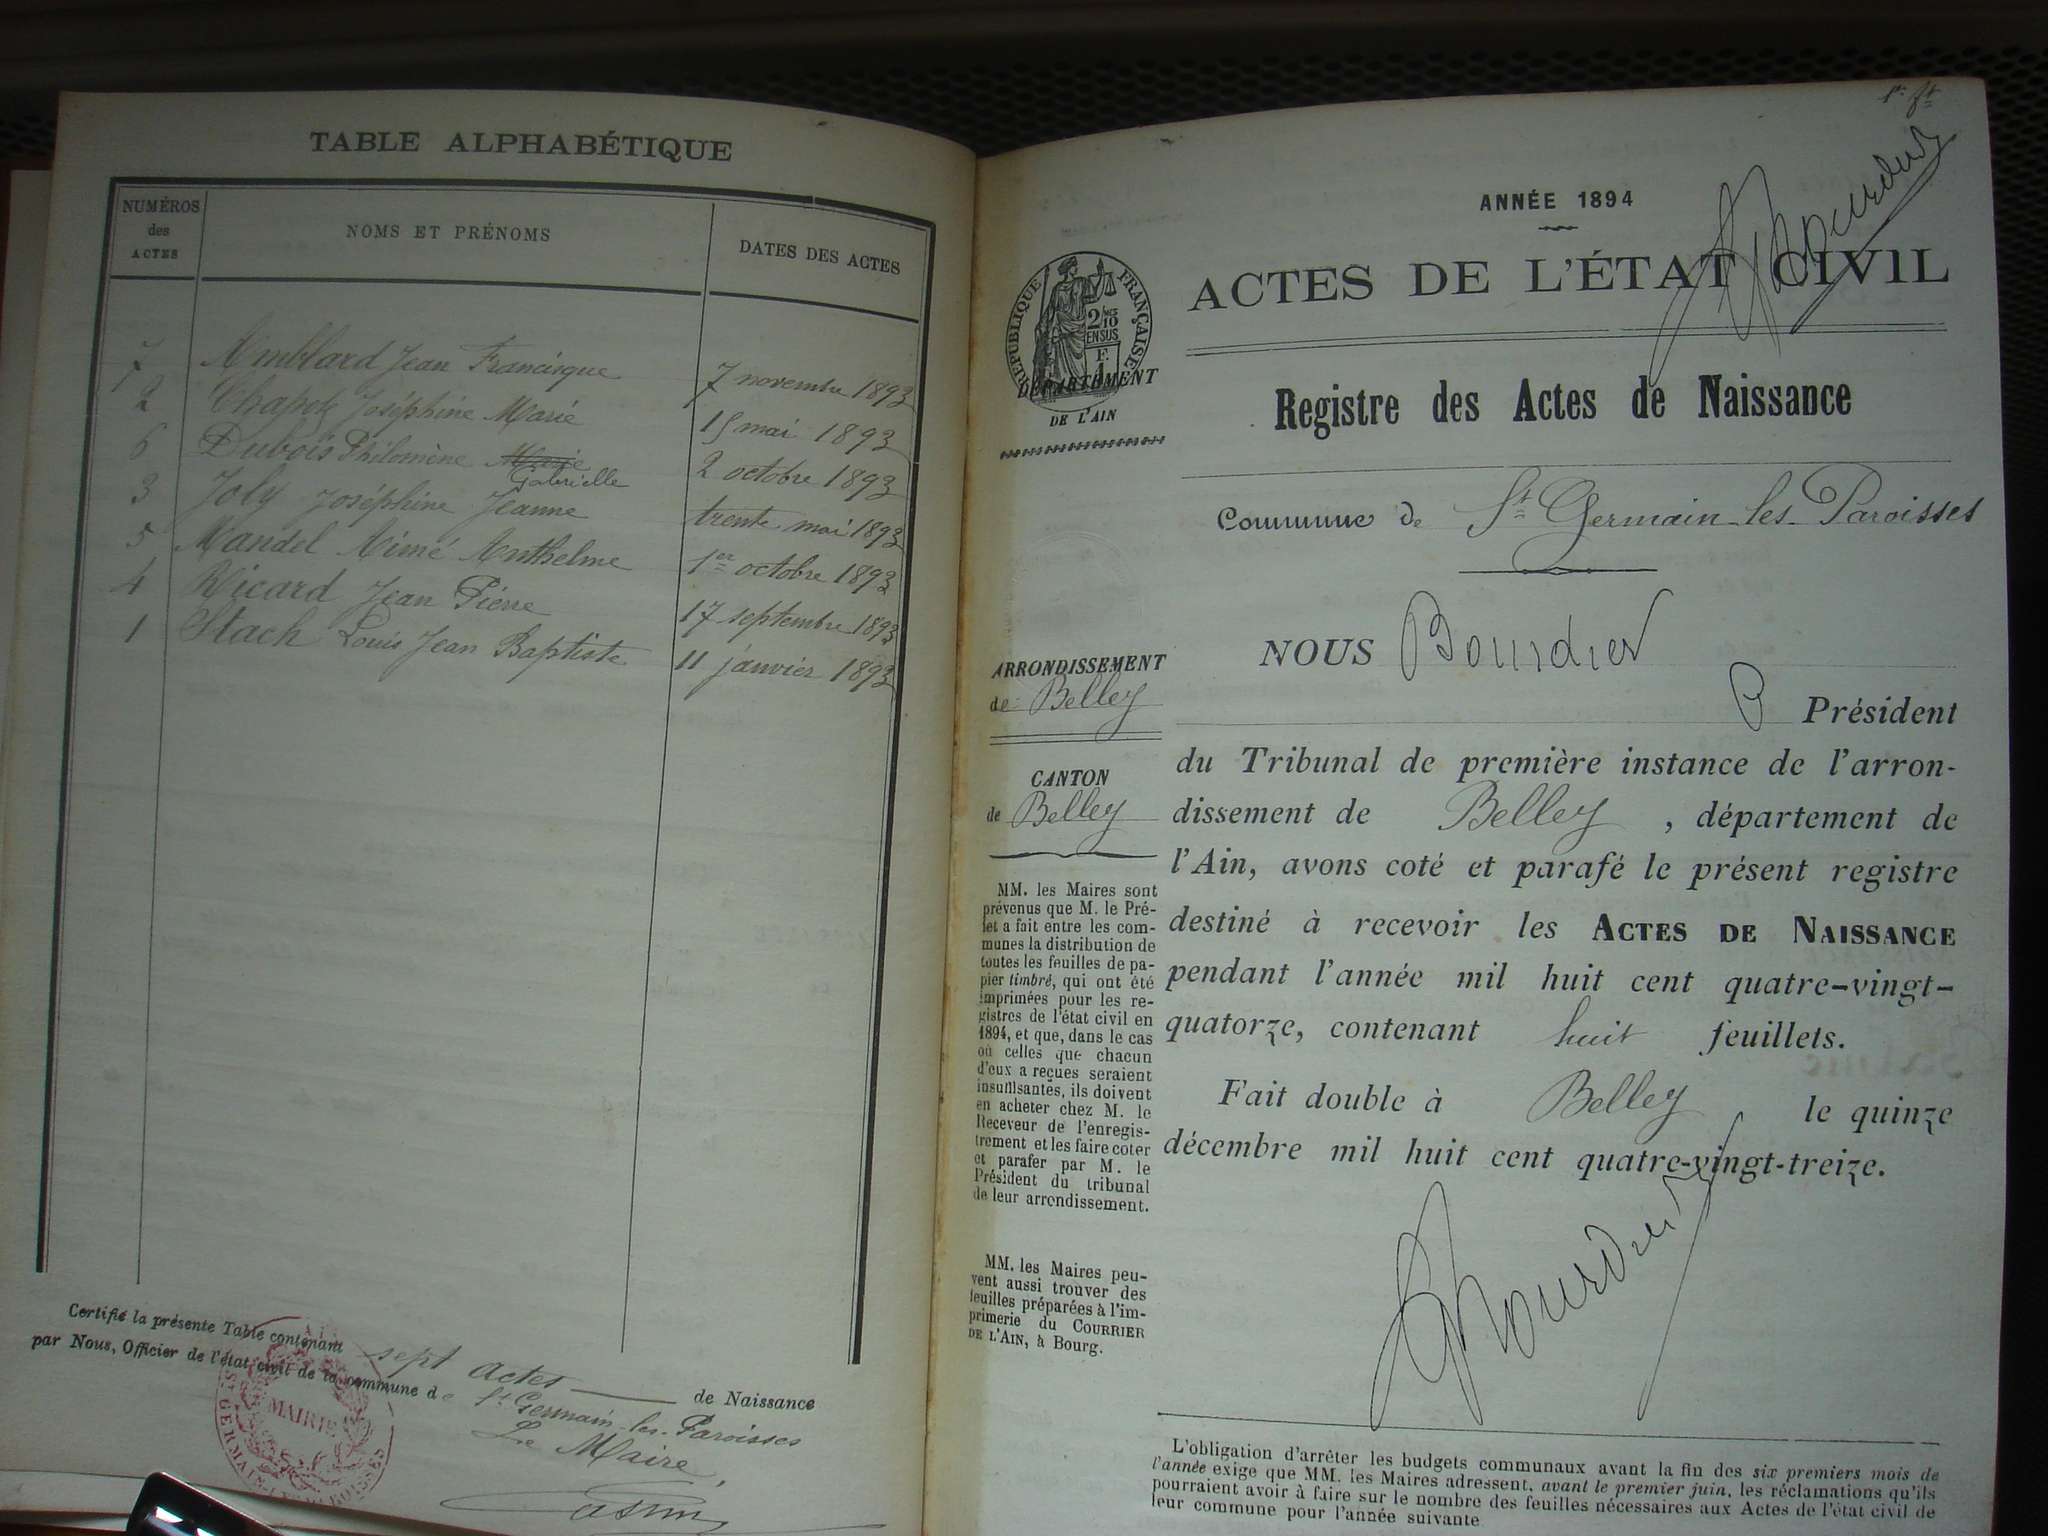 TABLE ALPHABÉTIQUE
NUMÉROS des ACTES NOMS ET PRÉNOMS DATES DES ACTES
7 Amblard Jean Francisque 7 novembre 1893
2 Joséphine Marie 15 mai 1893
6 Dubois Philomène Marie Gabrielle 2 octobre 1893
3 Joly Joséphine Jeanne trente mai 1893
5 Mandel Aimé Anthelme 1er octobre 1893
4 Ricard Jean Pierre 17 septembre 1893
1 Stach Louis Jean Baptiste 11 janvier 1893
Certifié la présente Table contenant sept Actes de Naissance
par Nous, Officier de l'état civil de la commune de St Germain-les-Paroisses
Le Maire,
MAIRIE
ANNÉE 1894
ACTES DE L'ÉTAT CIVIL
RÉPUBLIQUE FRANÇAISE
2/10 EN SUS
DÉPARTEMENT
DE L'AIN
Registre des Actes de Naissance
Commune de St Germain-les-Paroisses
NOUS Bourdier
ARRONDISSEMENT
de Belley
Président
du Tribunal de première instance de l'arron-
CANTON
de Belley
dissement de Belley, département de
l'Ain, avons coté et parafé le présent registre
destiné à recevoir les ACTES DE NAISSANCE
pendant l'année mil huit cent quatre-vingt-
quatorze, contenant huit feuillets.
Fait double à Belley le quinze
décembre mil huit cent quatre-vingt-treize.
Bourdier
MM. les Maires sont
prévenus que M. le Pré-
fet a fait entre les com-
munes la distribution de
toutes les feuilles de pa-
pier timbré, qui ont été
imprimées pour les re-
gistres de l'état civil en
1894, et que, dans le cas
où celles que chacun
d'eux a reçues seraient
insuffisantes, ils doivent
en acheter chez M. le
Receveur de l'enregis-
trement et les faire coter
et parafer par M. le
Président du tribunal
de leur arrondissement.
MM. les Maires peu-
vent aussi trouver des
feuilles préparées à l'im-
primerie du COURRIER
DE L'AIN, à Bourg.
L'obligation d'arrêter les budgets communaux avant la fin des six premiers mois de
l'année exige que MM. les Maires adressent, avant le premier juin, les réclamations qu'ils
pourraient avoir à faire sur le nombre des feuilles nécessaires aux Actes de l'état civil de
leur commune pour l'année suivante